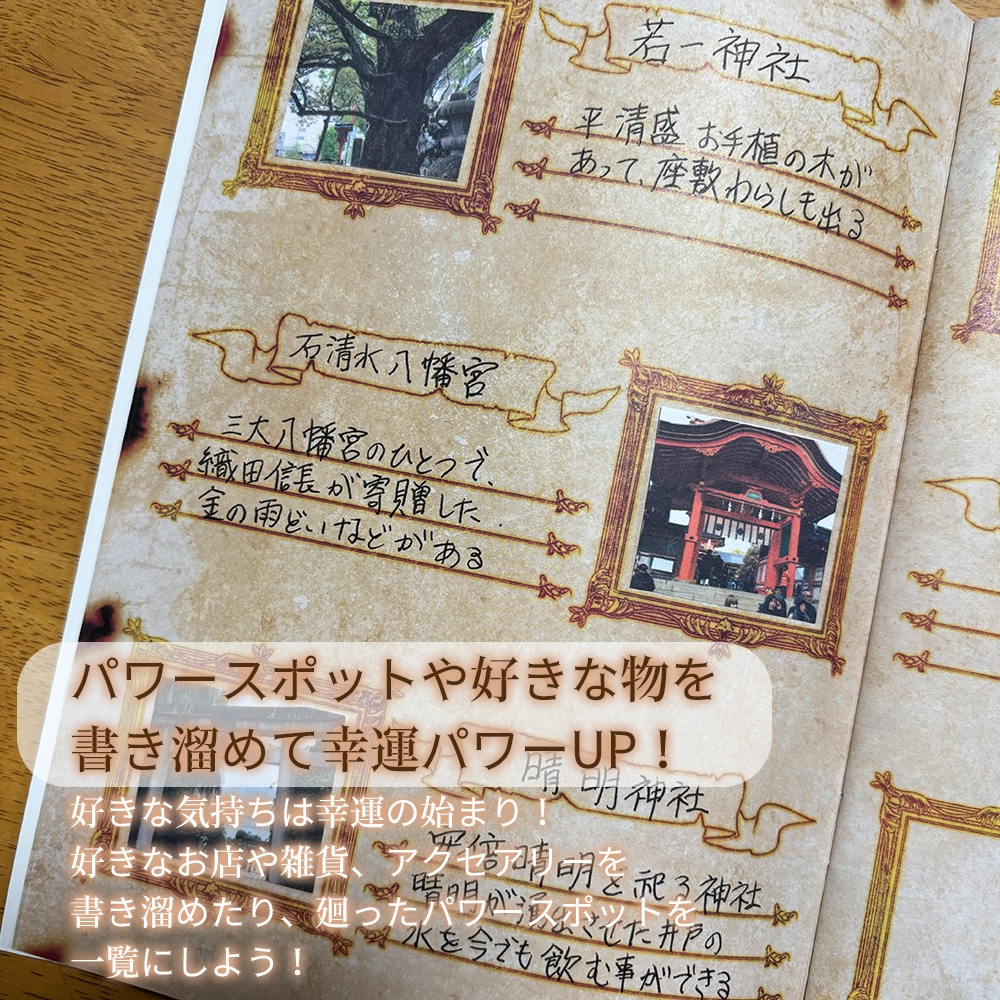 若一神社
平清盛 お手植の木が
あって、座敷わらしも出る
石清水八幡宮
三大八幡宮のひとつで、
織田信長が寄贈した
金の雨どいなどがある
パワースポットや好きな物を
書き溜めて幸運パワーUP！
晴明神社
好きな気持ちは幸運の始まり！
好きなお店や雑貨、アクセアリーを
書き溜めたり、廻ったパワースポットを
一覧にしよう！
晴明を祀る神社
晴明が湧出させた井戸の
水を今でも飲む事ができる